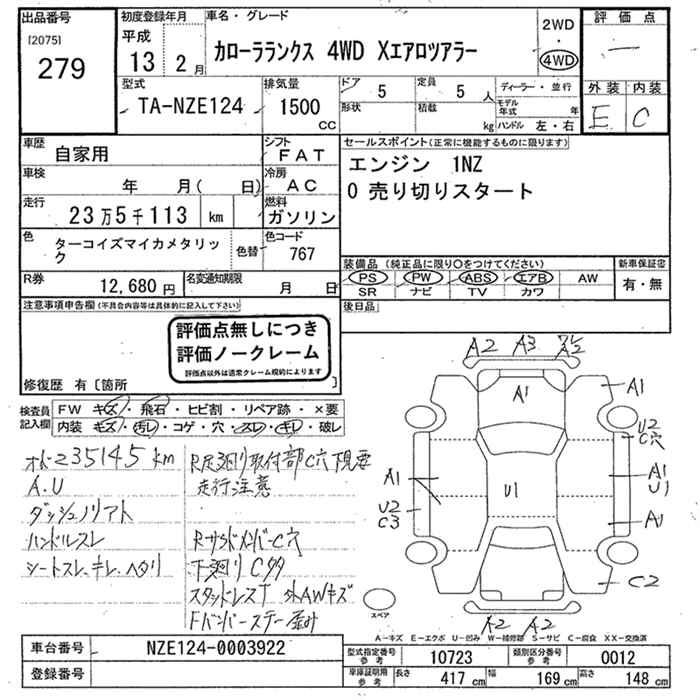 出品番号 初度登録年月 車名・グレード 2WD 評価点
[2075] 平成 ・
279 13 2月 カローラランクス 4WD Xエアロツアラー 4WD 一
型式 排気量 ドア 5 定員 5人 ディーラー・並行 外装 内装
TA-NZE124 1500 形状 積載 モデル年式 年 E C
CC kg ハンドル 左・右
車歴 自家用 シフト FAT セールスポイント(正常に機能するものに限ります)
車検 年 月( 日) 冷房 AC エンジン 1NZ
走行 23万5千113 km 燃料 ガソリン 0 売り切りスタート
色 ターコイズマイカメタリック 色替 色コード 767
装備品(純正品に限り○をつけてください) 新車保証書
R券 12,680円 名変通知期限 月 日 PS PW ABS エアB AW 有・無
SR ナビ TV カワ
注意事項申告欄(不具合内容等は具体的に記入して下さい) 後日品
評価点無しにつき
評価ノークレーム
評価点以外は通常クレーム規約によります
修復歴 有〔箇所
検査員記入欄 FW キズ・飛石・ヒビ割・リペア跡・×要
内装 キズ・汚レ・コゲ・穴・スレ・キレ・破レ
235145km R足廻り取付部C穴下現要
A.U 走行注意
ダッシュノリアト
ハンドルスレ RサイドメンバーC穴
シートスレ、キレ、ヘタリ 下廻りC多
スタッドレスT 外AWキズ
Fバンパーステー歪み
A2 A3
A1
A1
U2
C穴
A1
A1
U1
U1
U2
C3
A1
C2
A2 A2
スペア
A-キズ E-エクボ U-凹み W-補修跡 S-サビ C-腐食 XX-交換済
車台番号 NZE124-0003922 型式指定番号 参考 10723 類別区分番号 参考 0012
登録番号 車庫証明用 参考 長さ 417cm 幅 169cm 高さ 148cm